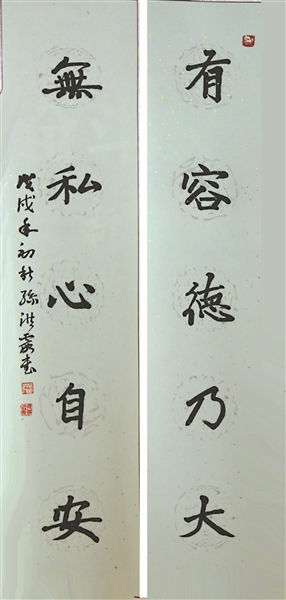 有容德乃大
無私心自安
戊戌年初秋孫洪霞書